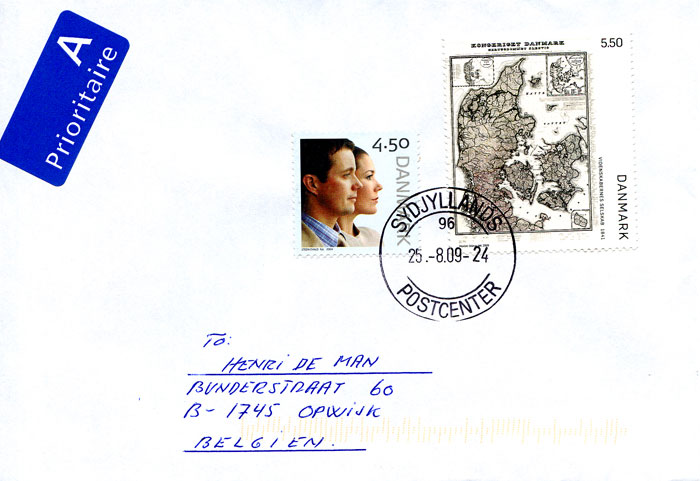 A
Prioritaire
4.50
DANMARK
KONGERIGET DANMARK
5.50
VIDENSKABERNES SELSKAB 1841
DANMARK
SYDJYLLANDS
96
25.-8.09-24
POSTCENTER
To:
HENRI DE MAN
BUNDERSTRAAT 60
B-1745 OPWIJK
BELGIEN.